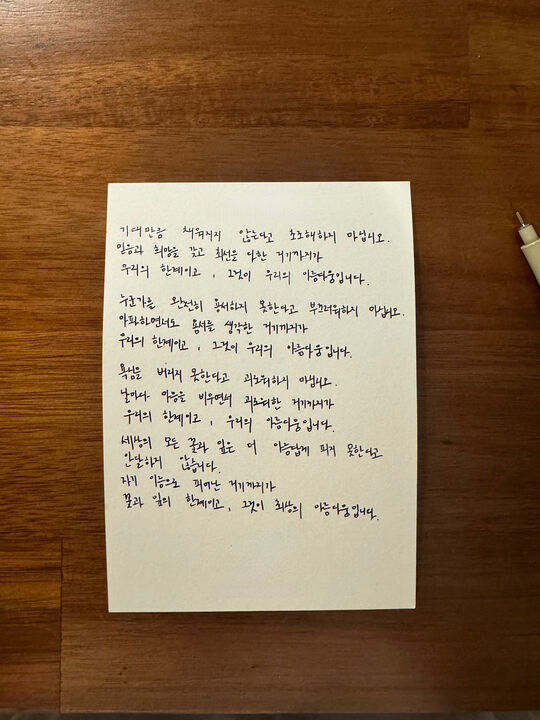 기대만큼 채워지지 않는다고 초조해하지 마십시오.
믿음과 희망을 갖고 최선을 다한 거기까지가
우리의 한계이고, 그것이 우리의 아름다움입니다.
누군가를 완전히 용서하지 못한다고 부끄러워하지 마십시오.
아파하면서도 용서를 생각한 거기까지가
우리의 한계이고, 그것이 우리의 아름다움입니다.
욕심을 버리지 못한다고 괴로워하지 마십시오.
날마다 마음을 비우면서 괴로워한 거기까지가
우리의 한계이고, 우리의 아름다움입니다.
세상의 모든 꽃과 잎은 더 아름답게 피지 못한다고
안달하지 않습니다.
자기 이름으로 피어난 거기까지가
꽃과 잎의 한계이고, 그것이 최상의 아름다움입니다.